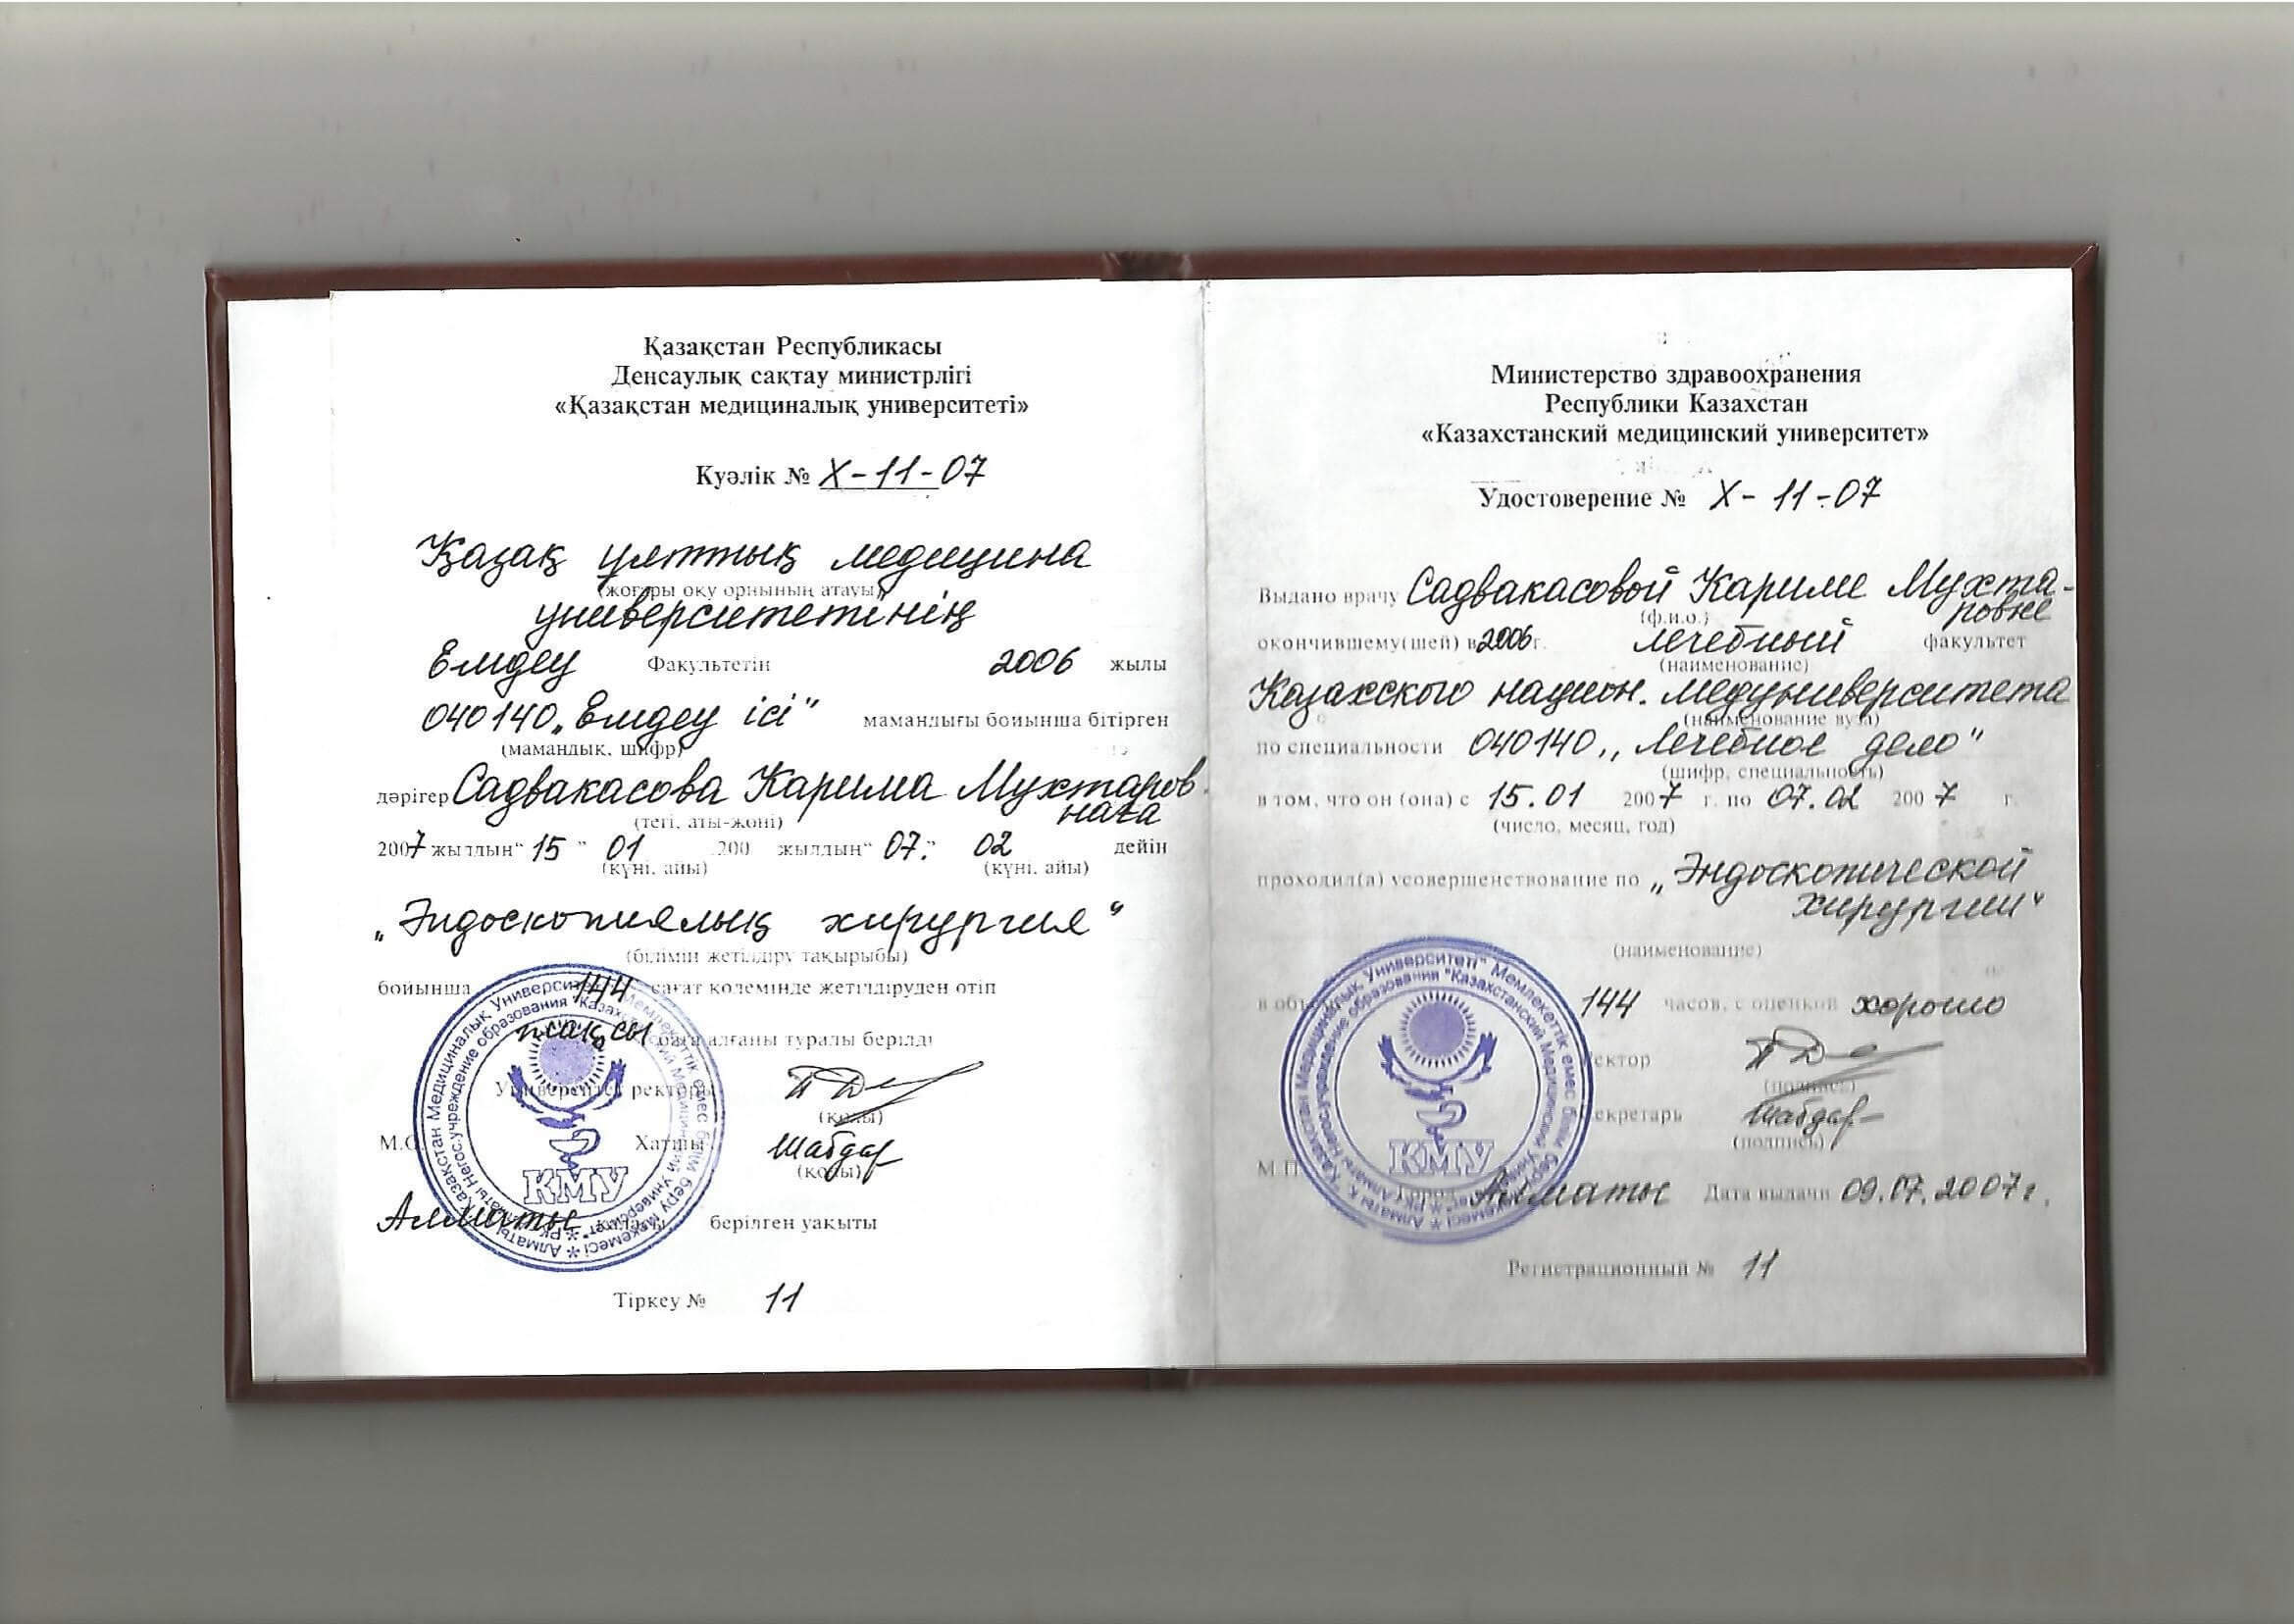 Қазақстан Республикасы
Денсаулық сақтау министрлігі
«Қазақстан медициналық университеті»
Куәлік № X-11-07
Қазақ ұлттық медицина
(жоғары оқу орнының атауы)
университетінің
Емдеу Факультетін 2006 жылы
040140 „Емдеу ісі" мамандығы бойынша бітірген
(мамандық, шифр)
дәрігер Садвакасова Карима Мухтаров
наға
(тегі, аты-жөні)
2007 жылдың “ 15 ” 01 200 жылдың “ 07 ” 02 дейін
(күні, айы) (күні, айы)
„Эндоскопиялық хирургия"
(білімін жетілдіру тақырыбы)
бойынша 144 сағат көлемінде жетілдіруден өтіп
жақсы баға алғаны туралы берілді
Университет ректоры
(қолы)
М.О. Хатшы Шабдар
(қолы)
Алматы қаласы берілген уақыты
Тіркеу № 11
КМУ
Министерство здравоохранения
Республики Казахстан
«Казахстанский медицинский университет»
Удостоверение № X-11-07
Выдано врачу Садвакасовой Кариме Мухта-
ровне
(ф.и.о.)
окончившему(шей) в 2006 г. лечебный факультет
(наименование)
Казахского национ. медуниверситета
(наименование вуза)
по специальности 040140 „Лечебное дело"
(шифр, специальность)
в том, что он (она) с 15.01 2007 г. по 07.02 2007 г.
(число, месяц, год)
проходил(а) усовершенствование по „Эндоскопической
хирургии"
(наименование)
в объеме 144 часов, с оценкой хорошо
Ректор
(подпись)
Секретарь Шабдар
(подпись)
М.П. Город Алматы Дата выдачи 09.07.2007 г.
Регистрационный № 11
КМУ